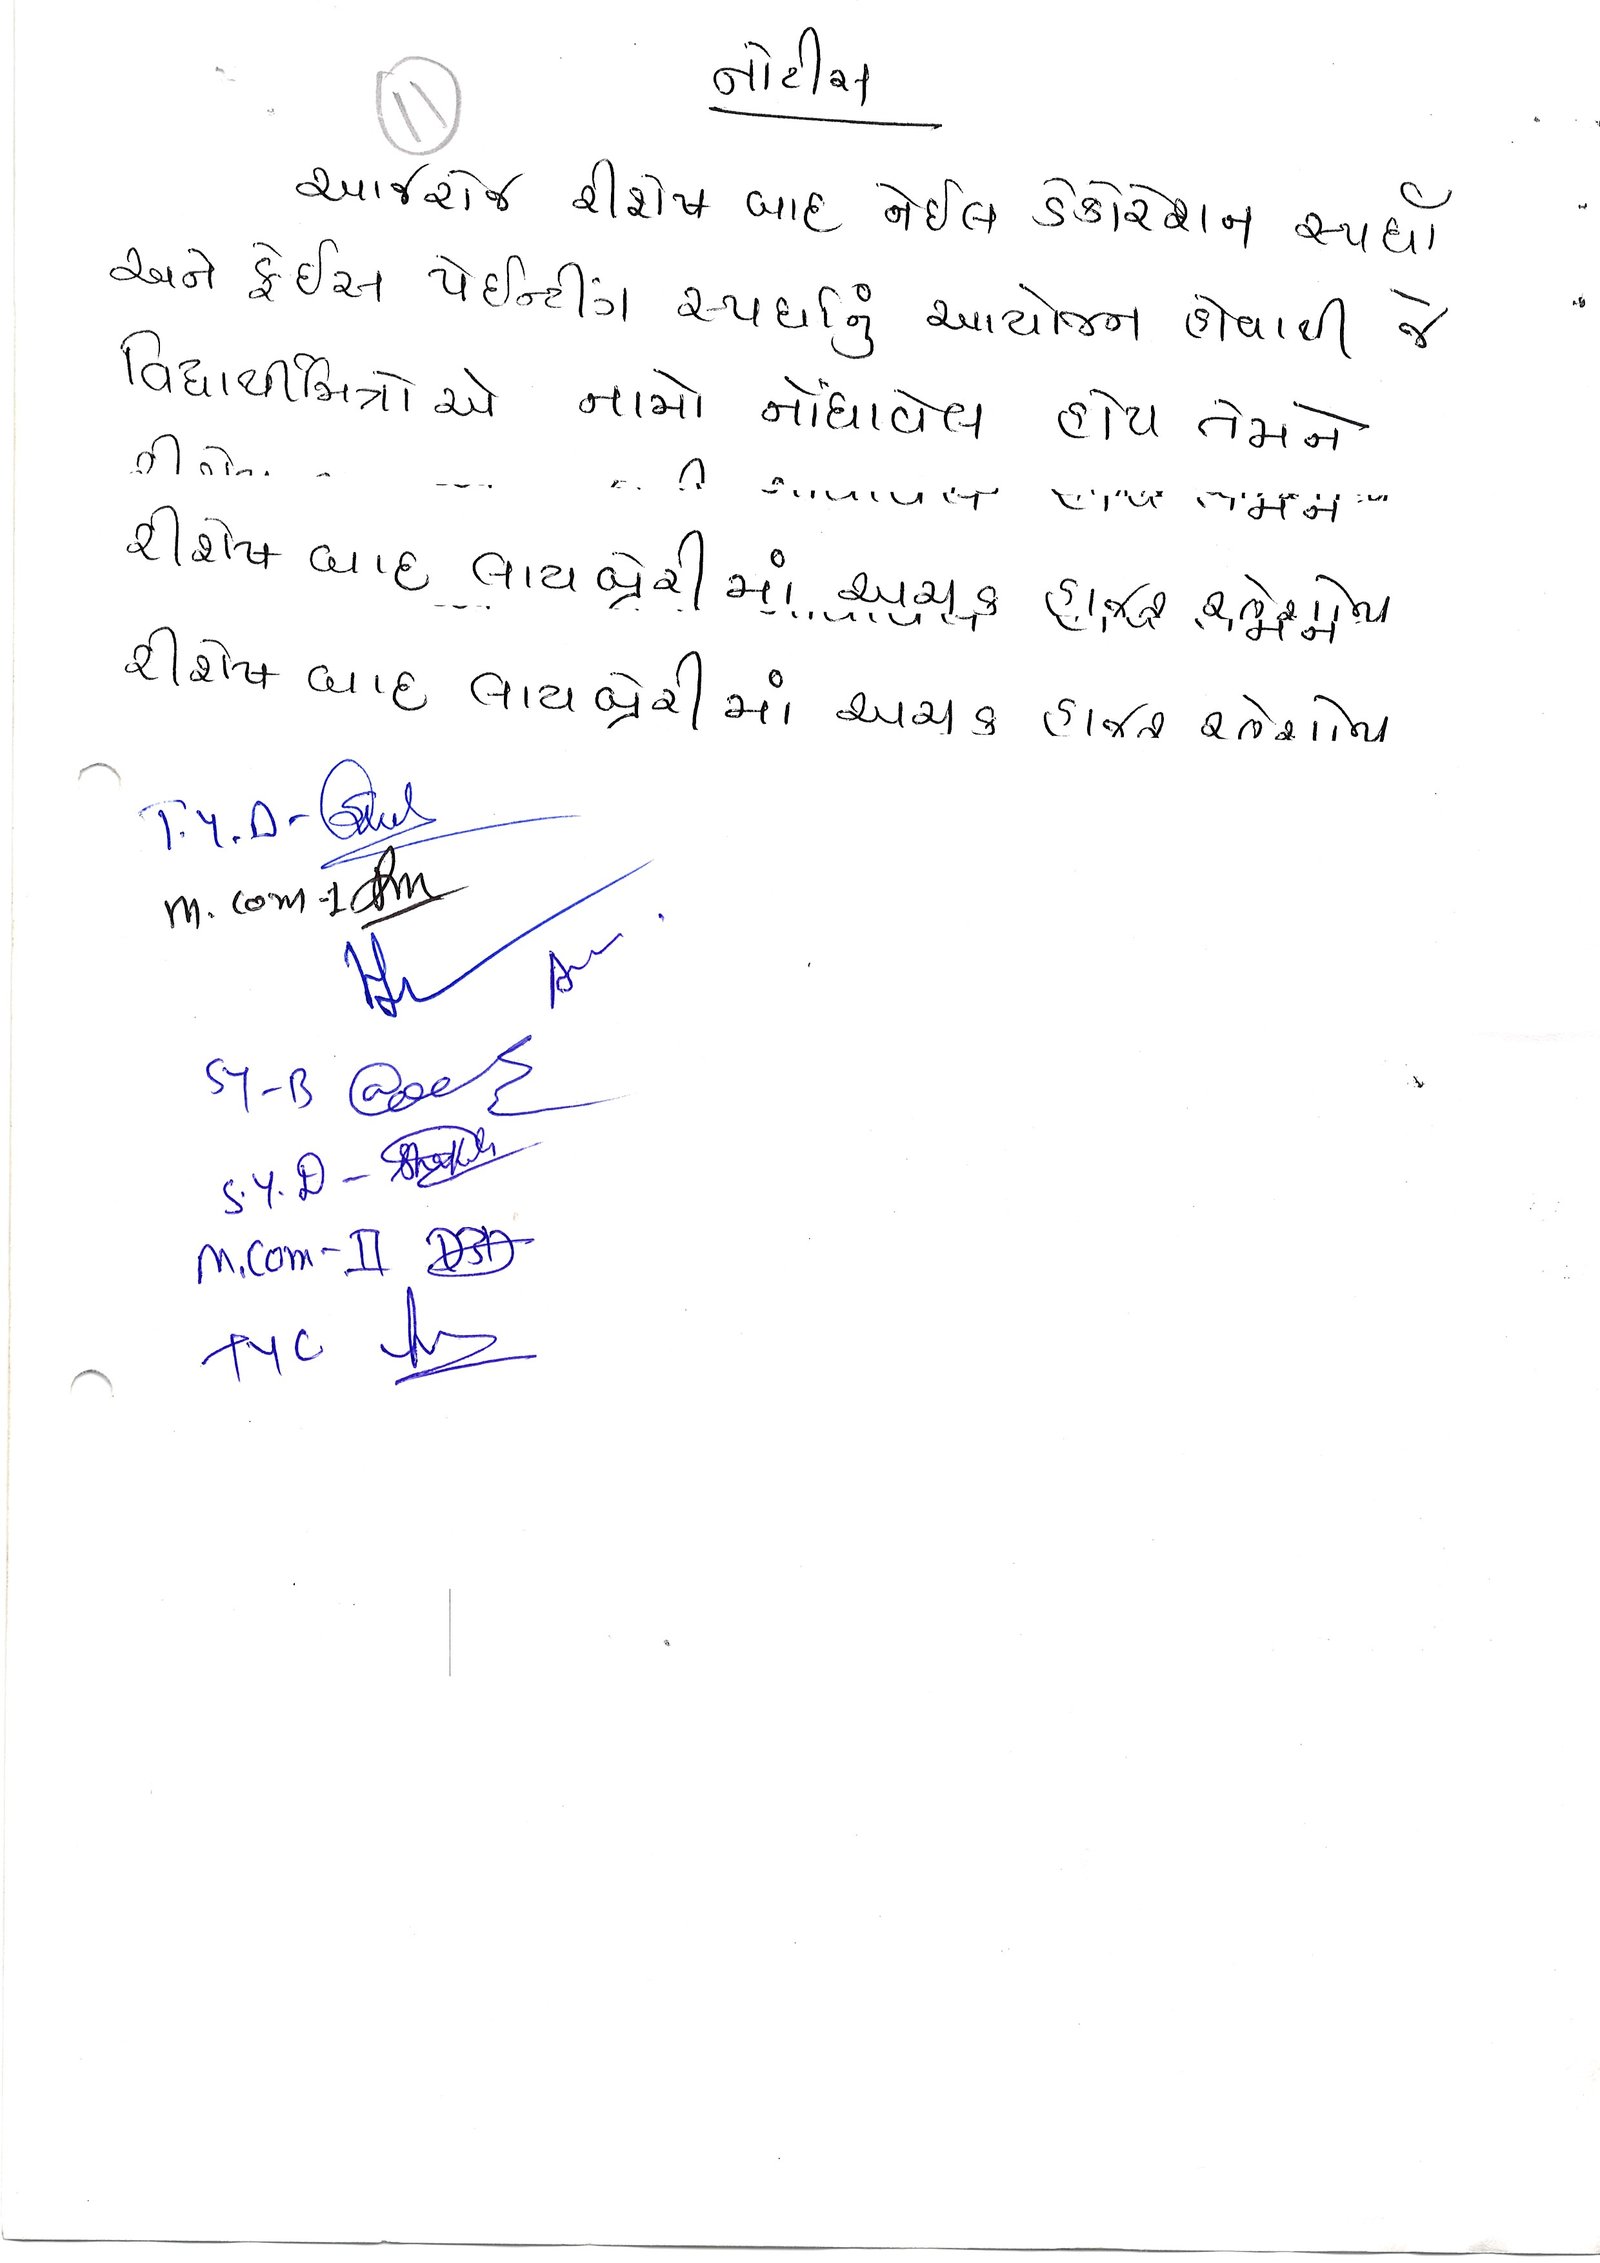 નોટીસ
11
આજરોજ રીશેષ બાદ નેઈલ ડેકોરેશન સ્પર્ધા
અને ફેઈસ પેઈન્ટીંગ સ્પર્ધાનું આયોજન હોવાથી જે
વિદ્યાર્થીમિત્રોએ નામો નોંધાવેલ હોય તેમને
રીશેષ બાદ લાયબ્રેરીમાં અચુક હાજર
રીશેષ બાદ લાયબ્રેરીમાં અચુક હાજર
T.Y.D -
M. Com - I
SY - B
S.Y. D -
M.Com - II
TYC